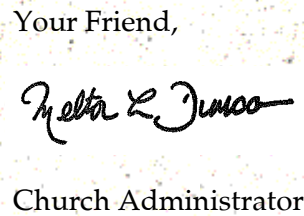 Your Friend,
Melton L. Duncan
Church Administrator